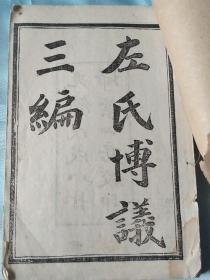 左氏博議
三編